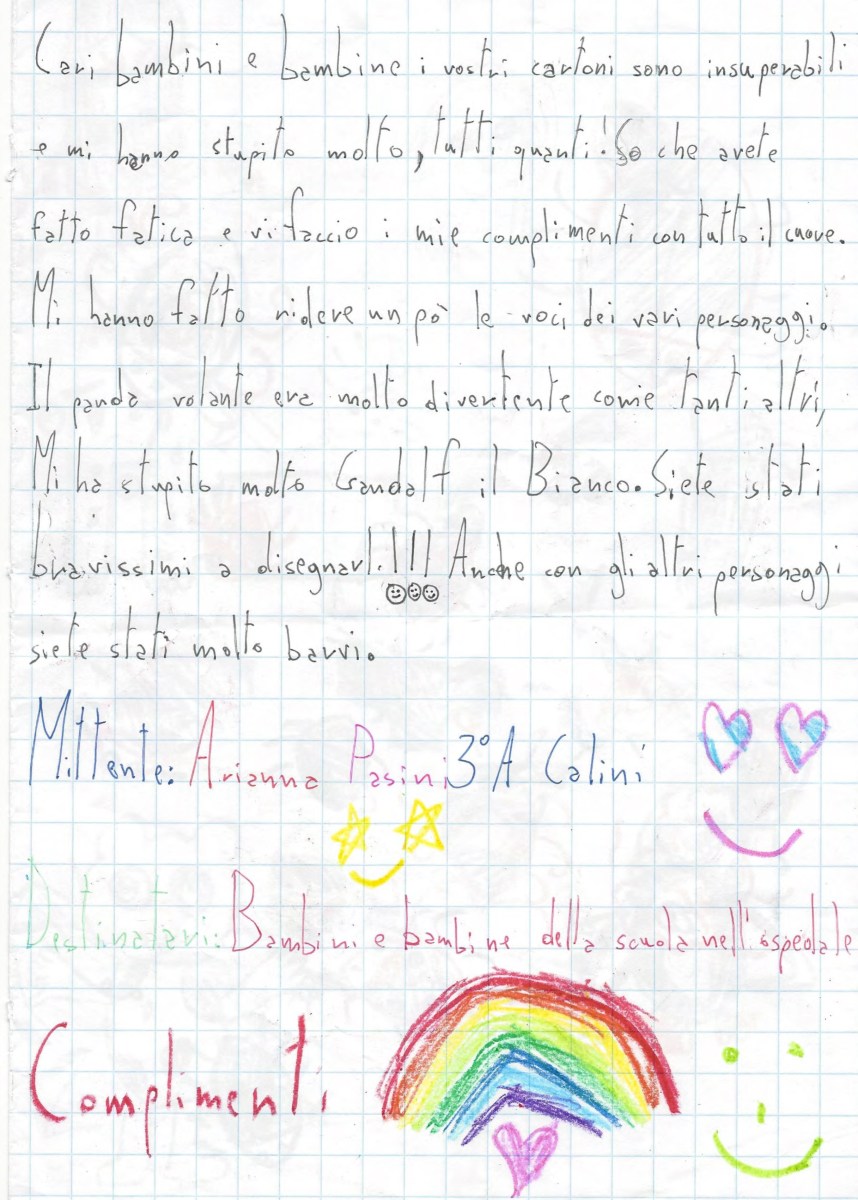 Cari bambini e bambine i vostri cartoni sono insuperabili
e mi hanno stupito molto, tutti quanti! So che avete
fatto fatica e vi faccio i mie complimenti con tutto il cuore.
Mi hanno fatto ridere un pò le voci dei vari personaggi.
Il panda volante era molto divertente come tanti altri,
Mi ha stupito molto Gandalf il Bianco. Siete stati
bravissimi a disegnarl.!!! Anche con gli altri personaggi
siete stati molto bavvi.
Mittente: Arianna Pasini 3°A Calini
Destinatari: Bambini e bambine della scuola nell'ospedale
Complimenti